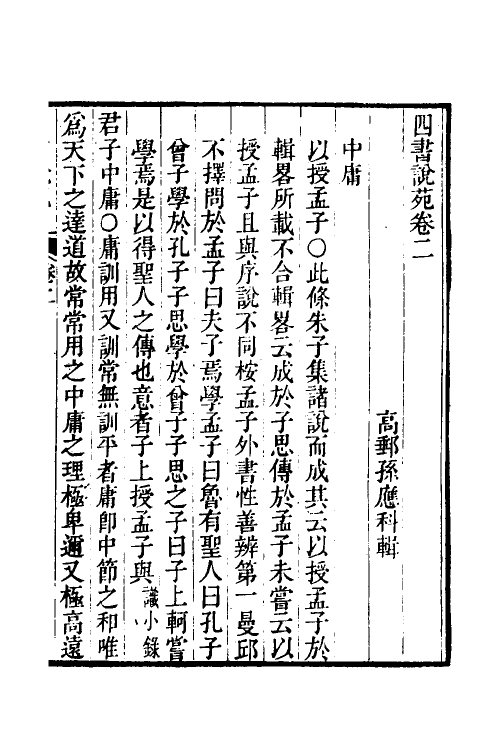 四書說苑卷二
高郵孫應科輯
中庸
以授孟子○此條朱子集諸說而成其云以授孟子於
輯畧所載不合輯畧云成於子思傳於孟子未嘗云以
授孟子且與序說不同桉孟子外書性善辨第一曼邱
不擇問於孟子曰夫子焉學孟子曰魯有聖人曰孔子
曾子學於孔子子思學於曾子子思之子曰子上軻嘗
學焉是以得聖人之傳也意者子上授孟子與識小錄
君子中庸○庸訓用又訓常無訓平者庸卽中節之和唯
爲天下之達道故常常用之中庸之理極卑邇又極高遠